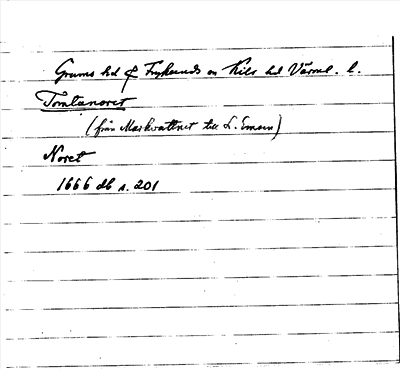 Grums hd & Frykeruds sn Kils hd Värml. l.
Tomtanoret
(från Markvattnet till L. Emsen)
Noret
1666 db s. 201